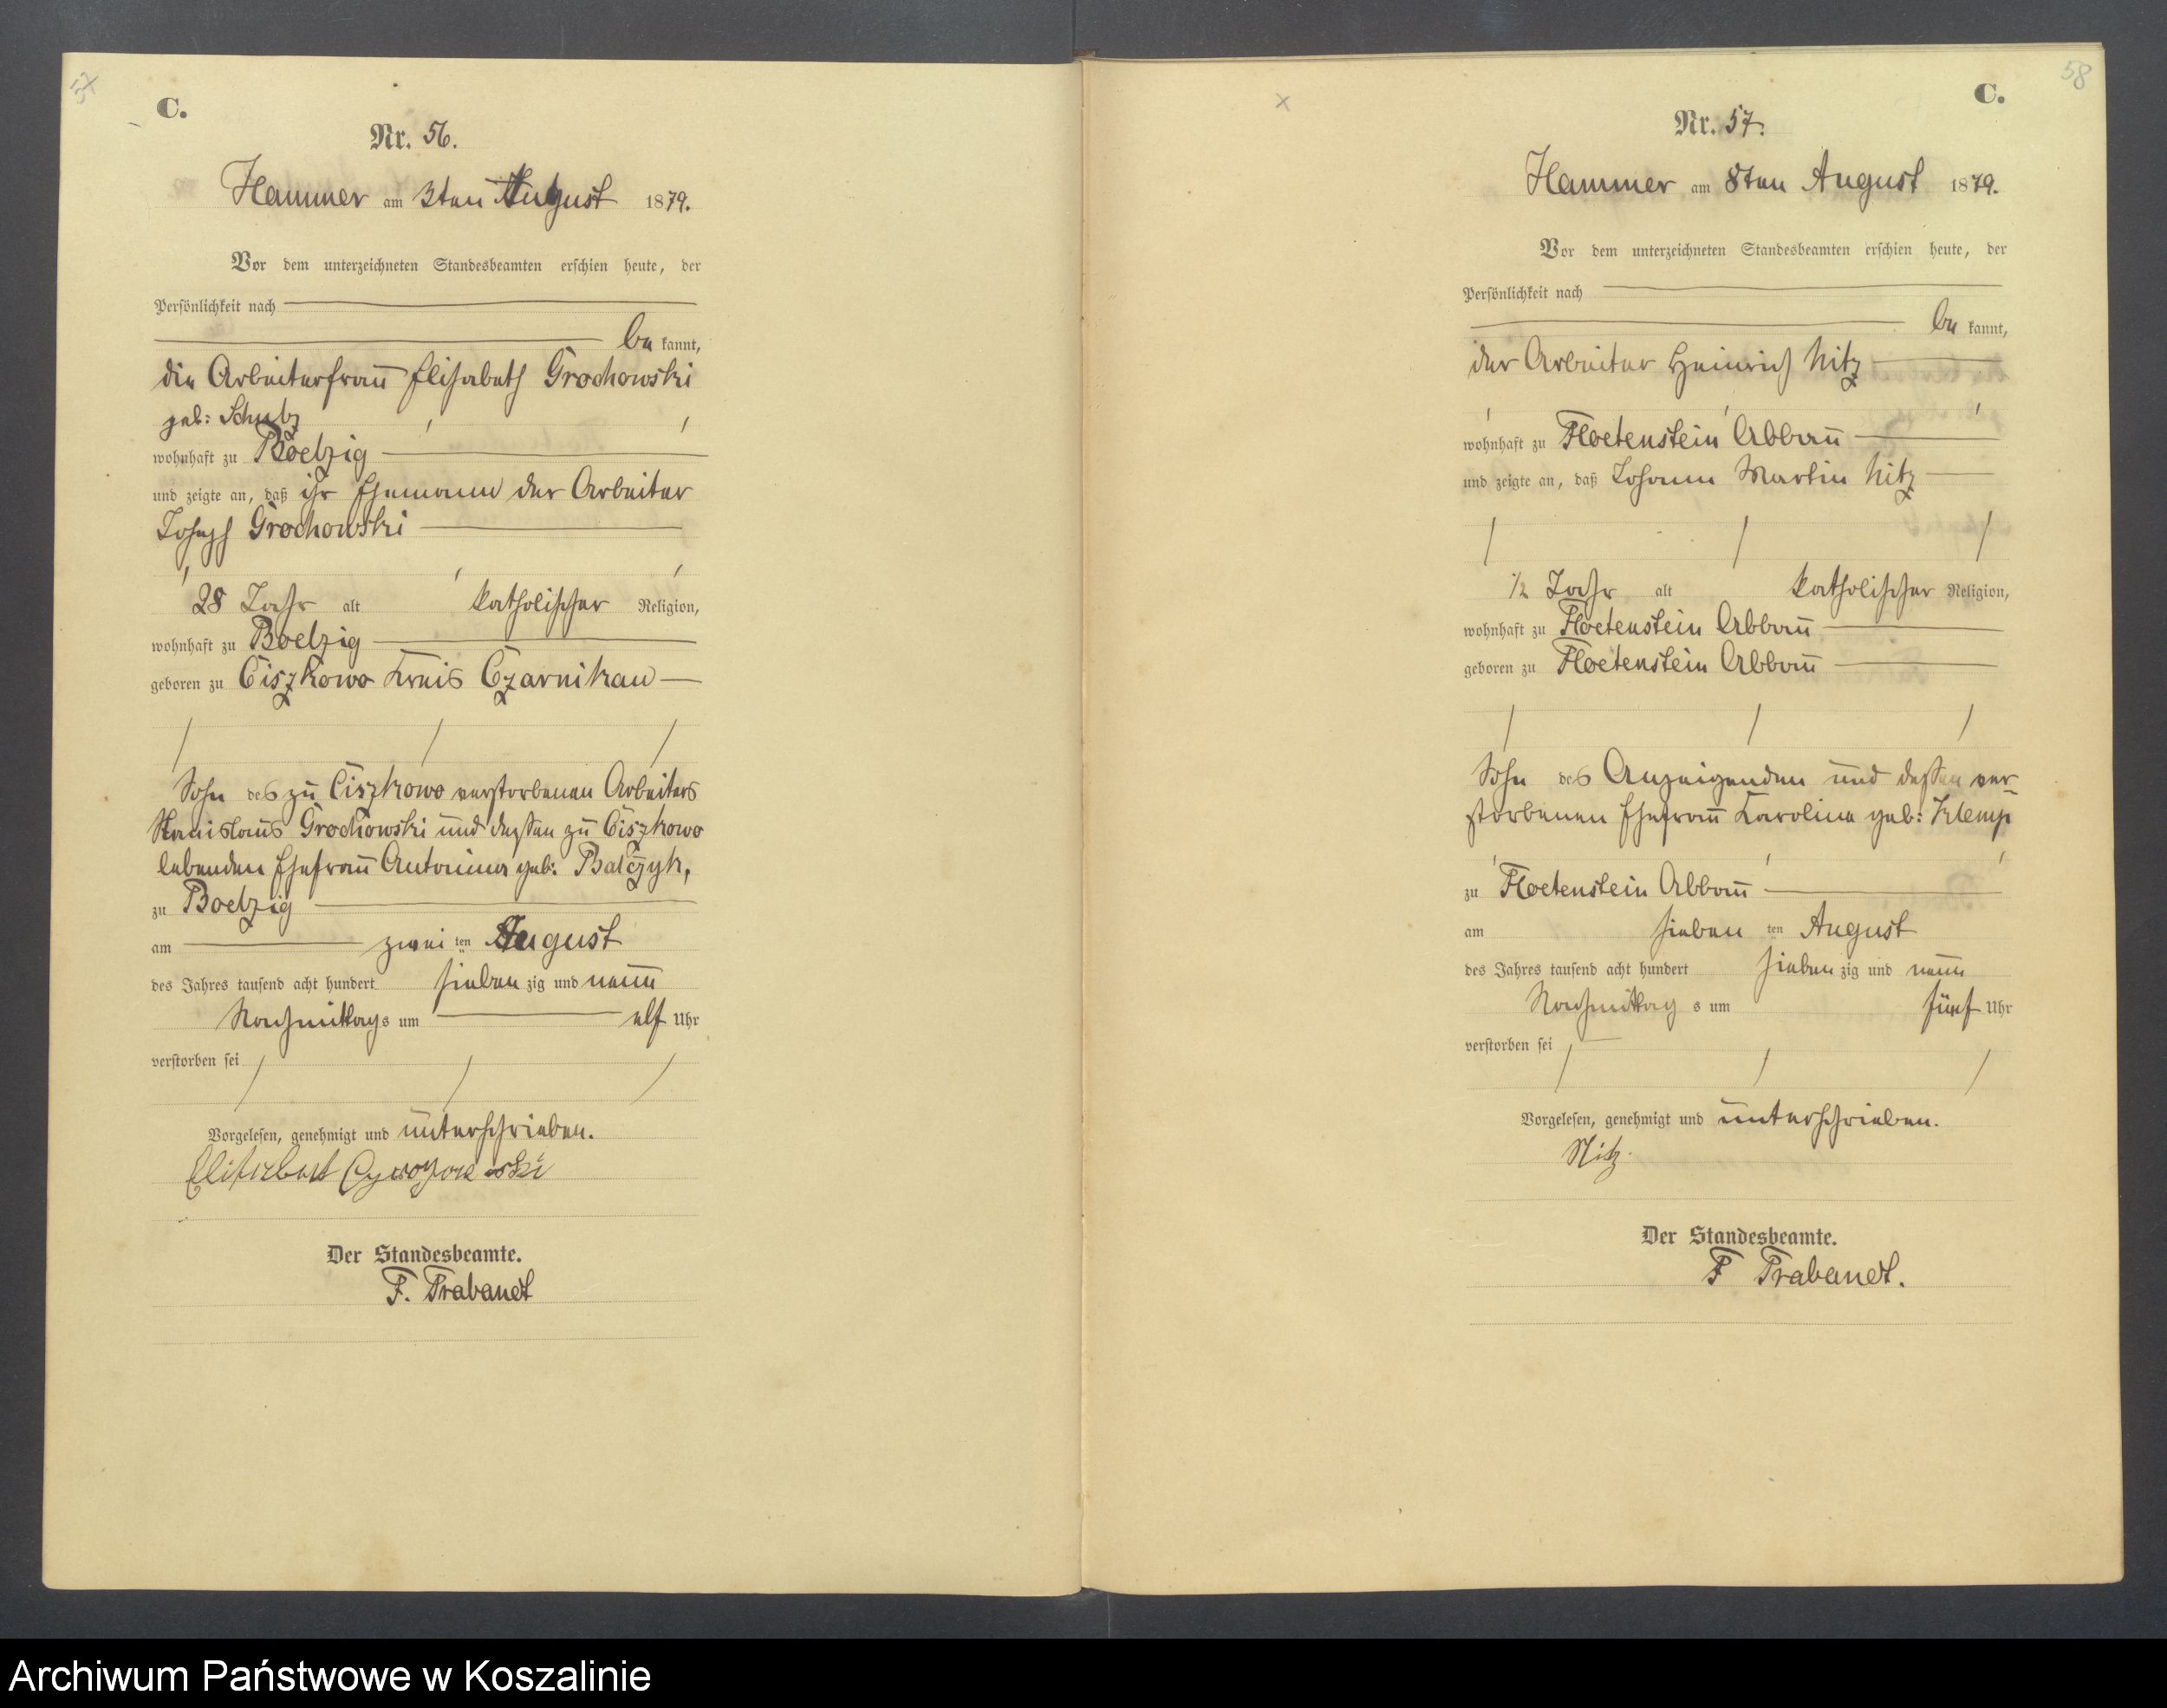 57
C.
Nr. 56.
Hammer am 3ten August 1879.
Vor dem unterzeichneten Standesbeamten erschien heute, der
Persönlichkeit nach
be kannt,
die Arbeiterfrau Elisabeth Grochowski
geb: Schulz
wohnhaft zu Boelzig
und zeigte an, daß ihr Ehemann der Arbeiter
Joseph Grochowski
28 Jahr alt katholischer Religion,
wohnhaft zu Boelzig
geboren zu Ciszkowo Kreis Czarnikau
Sohn des zu Ciszkowo verstorbenen Arbeiters
Stanislaus Grochowski und dessen zu Ciszkowo
lebenden Ehefrau Antonina geb: Balczyk,
zu Boelzig
am zwei ten August
des Jahres tausend acht hundert sieben zig und neun
Nachmittags um elf Uhr
verstorben sei
Vorgelesen, genehmigt und unterschrieben.
Der Standesbeamte.
F. Trabandt
58
C.
Nr. 57.
Hammer am 8ten August 1879.
Vor dem unterzeichneten Standesbeamten erschien heute, der
Persönlichkeit nach
be kannt,
der Arbeiter Heinrich Nitz
wohnhaft zu Floetenstein Abbau
und zeigte an, daß Johann Martin Nitz
1/2 Jahr alt katholischer Religion,
wohnhaft zu Floetenstein Abbau
geboren zu Floetenstein Abbau
Sohn des Anzeigenden und dessen ver-
storbenen Ehefrau Karoline geb: Klemp
zu Floetenstein Abbau
am sieben ten August
des Jahres tausend acht hundert sieben zig und neun
Nachmittag s um fünf Uhr
verstorben sei
Vorgelesen, genehmigt und unterschrieben.
Nitz.
Der Standesbeamte.
F Trabandt.
Archiwum Państwowe w Koszalinie